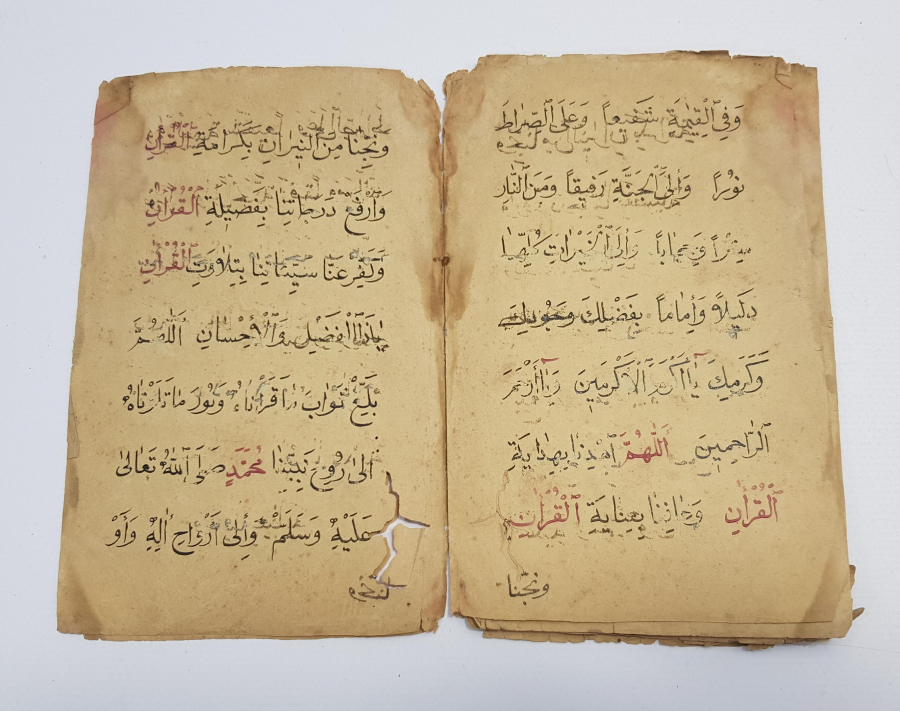 وَفِي ٱلْقِيٰمَةِ شَفِيعاً وَعَلَى ٱلصِّرَاطِ
نُورًا وَإِلَى ٱلْجَنَّةِ رَفِيقاً وَمِنَ ٱلنَّارِ
سِتْراً وَحِجَاباً وَإِلَى ٱلْخَيْرَاتِ كُلِّهَا
دَلِيلاً وَإِمَاماً بِفَضْلِكَ وَجُودِكَ
وَكَرَمِكَ يَا أَكْرَمَ ٱلْأَكْرَمِينَ وَيَا أَرْحَمَ
ٱلرَّاحِمِينَ ٱَللّٰهُمَّ ٱهْدِنَا بِهِدَايَةِ
ٱلْقُرْاٰنِ وَعَافِنَا بِعِنَايَةِ ٱلْقُرْاٰنِ
وَنَجِّنَا
وَنَجِّنَا مِنَ ٱلنِّيرَانِ بِكَرَامَةِ ٱلْقُرْاٰنِ
وَٱرْفَعْ دَرَجَاتِنَا بِفَضِيلَةِ ٱلْقُرْاٰنِ
وَكَفِّرْ عَنَّا سَيِّئَاتِنَا بِتِلَاوَتِ ٱلْقُرْاٰنِ
يَاذَا ٱلْفَضْلِ وَٱلْأِحْسَانِ ٱَللّٰهُمَّ
بَلِّغْ ثَوَابَ مَا قَرَأْنَاهُ وَنُورَ مَا تَلَوْنَاهُ
اِلٰى رُوحِ نَبِيِّنَا مُحَمَّدٍ صَلَّى ٱللّٰهُ تَعَالٰى
عَلَيْهِ وَسَلَّمَ وَإِلٰى أَرْوَاحِ اٰلِهِ وَأَوْ